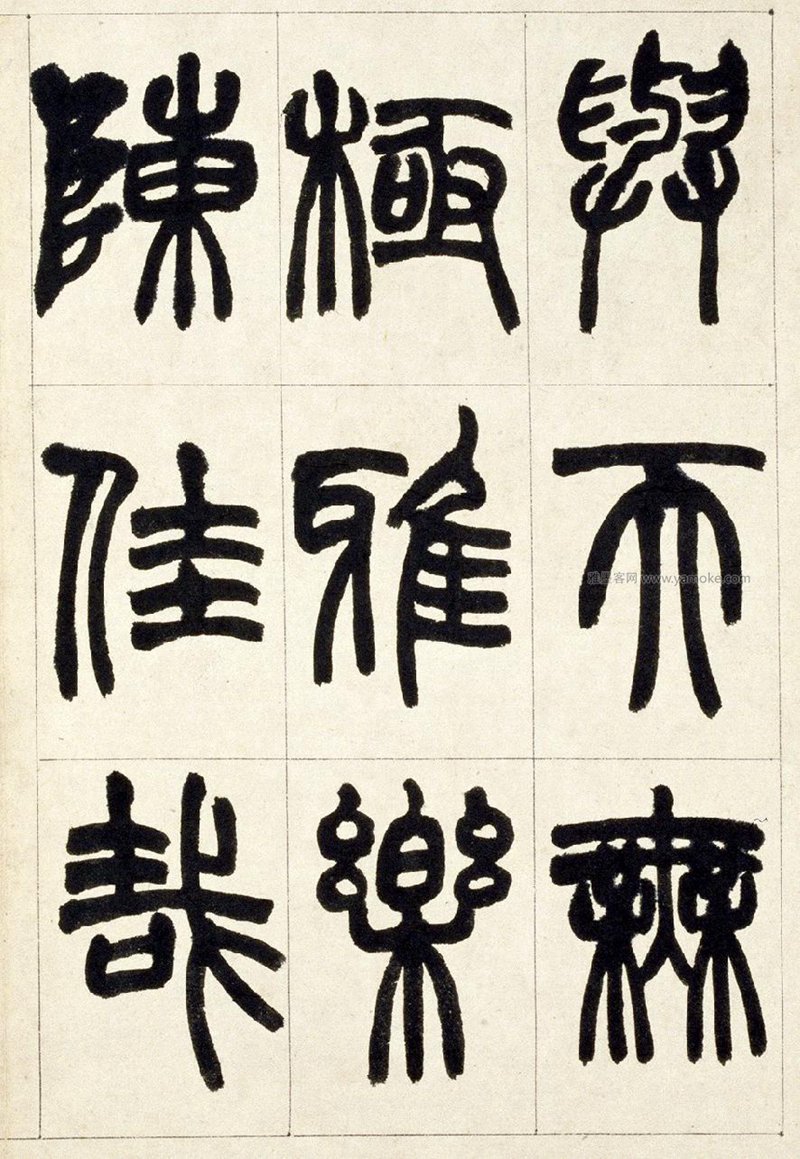 與天無
極雅樂
陳佳哉
雅墨客网 www.yamoke.com